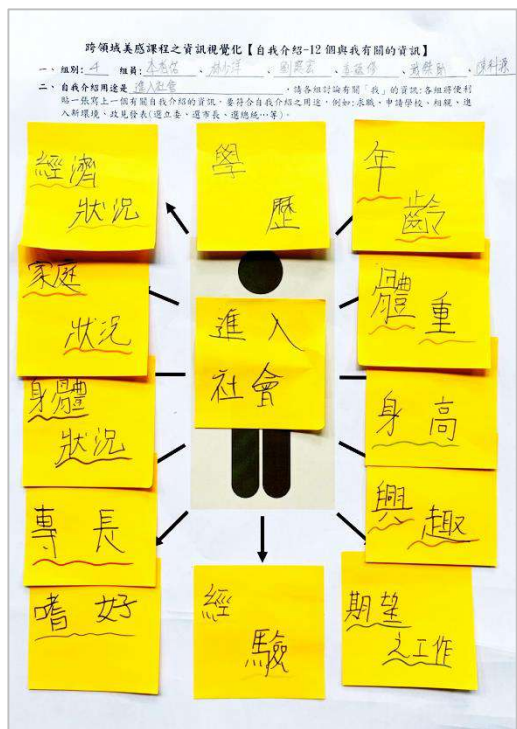 跨領域美感課程之資訊視覺化【自我介紹-12個與我有關的資訊】
一、組別: 4 組員:
二、自我介紹用途是 進入社會 ,請各組討論有關「我」的資訊:各組將便利
貼一張寫上一個有關自我介紹的資訊,要符合自我介紹之用途,例如:求職、申請學校、相親、進
入新環境、政見發表(選立委、選市長、選總統…等)。
經濟
狀況
學
歷
年
齡
家庭
狀況
進入
社會
體重
身體
狀況
身高
專長
興趣
嗜好
經
驗
期望
之工作